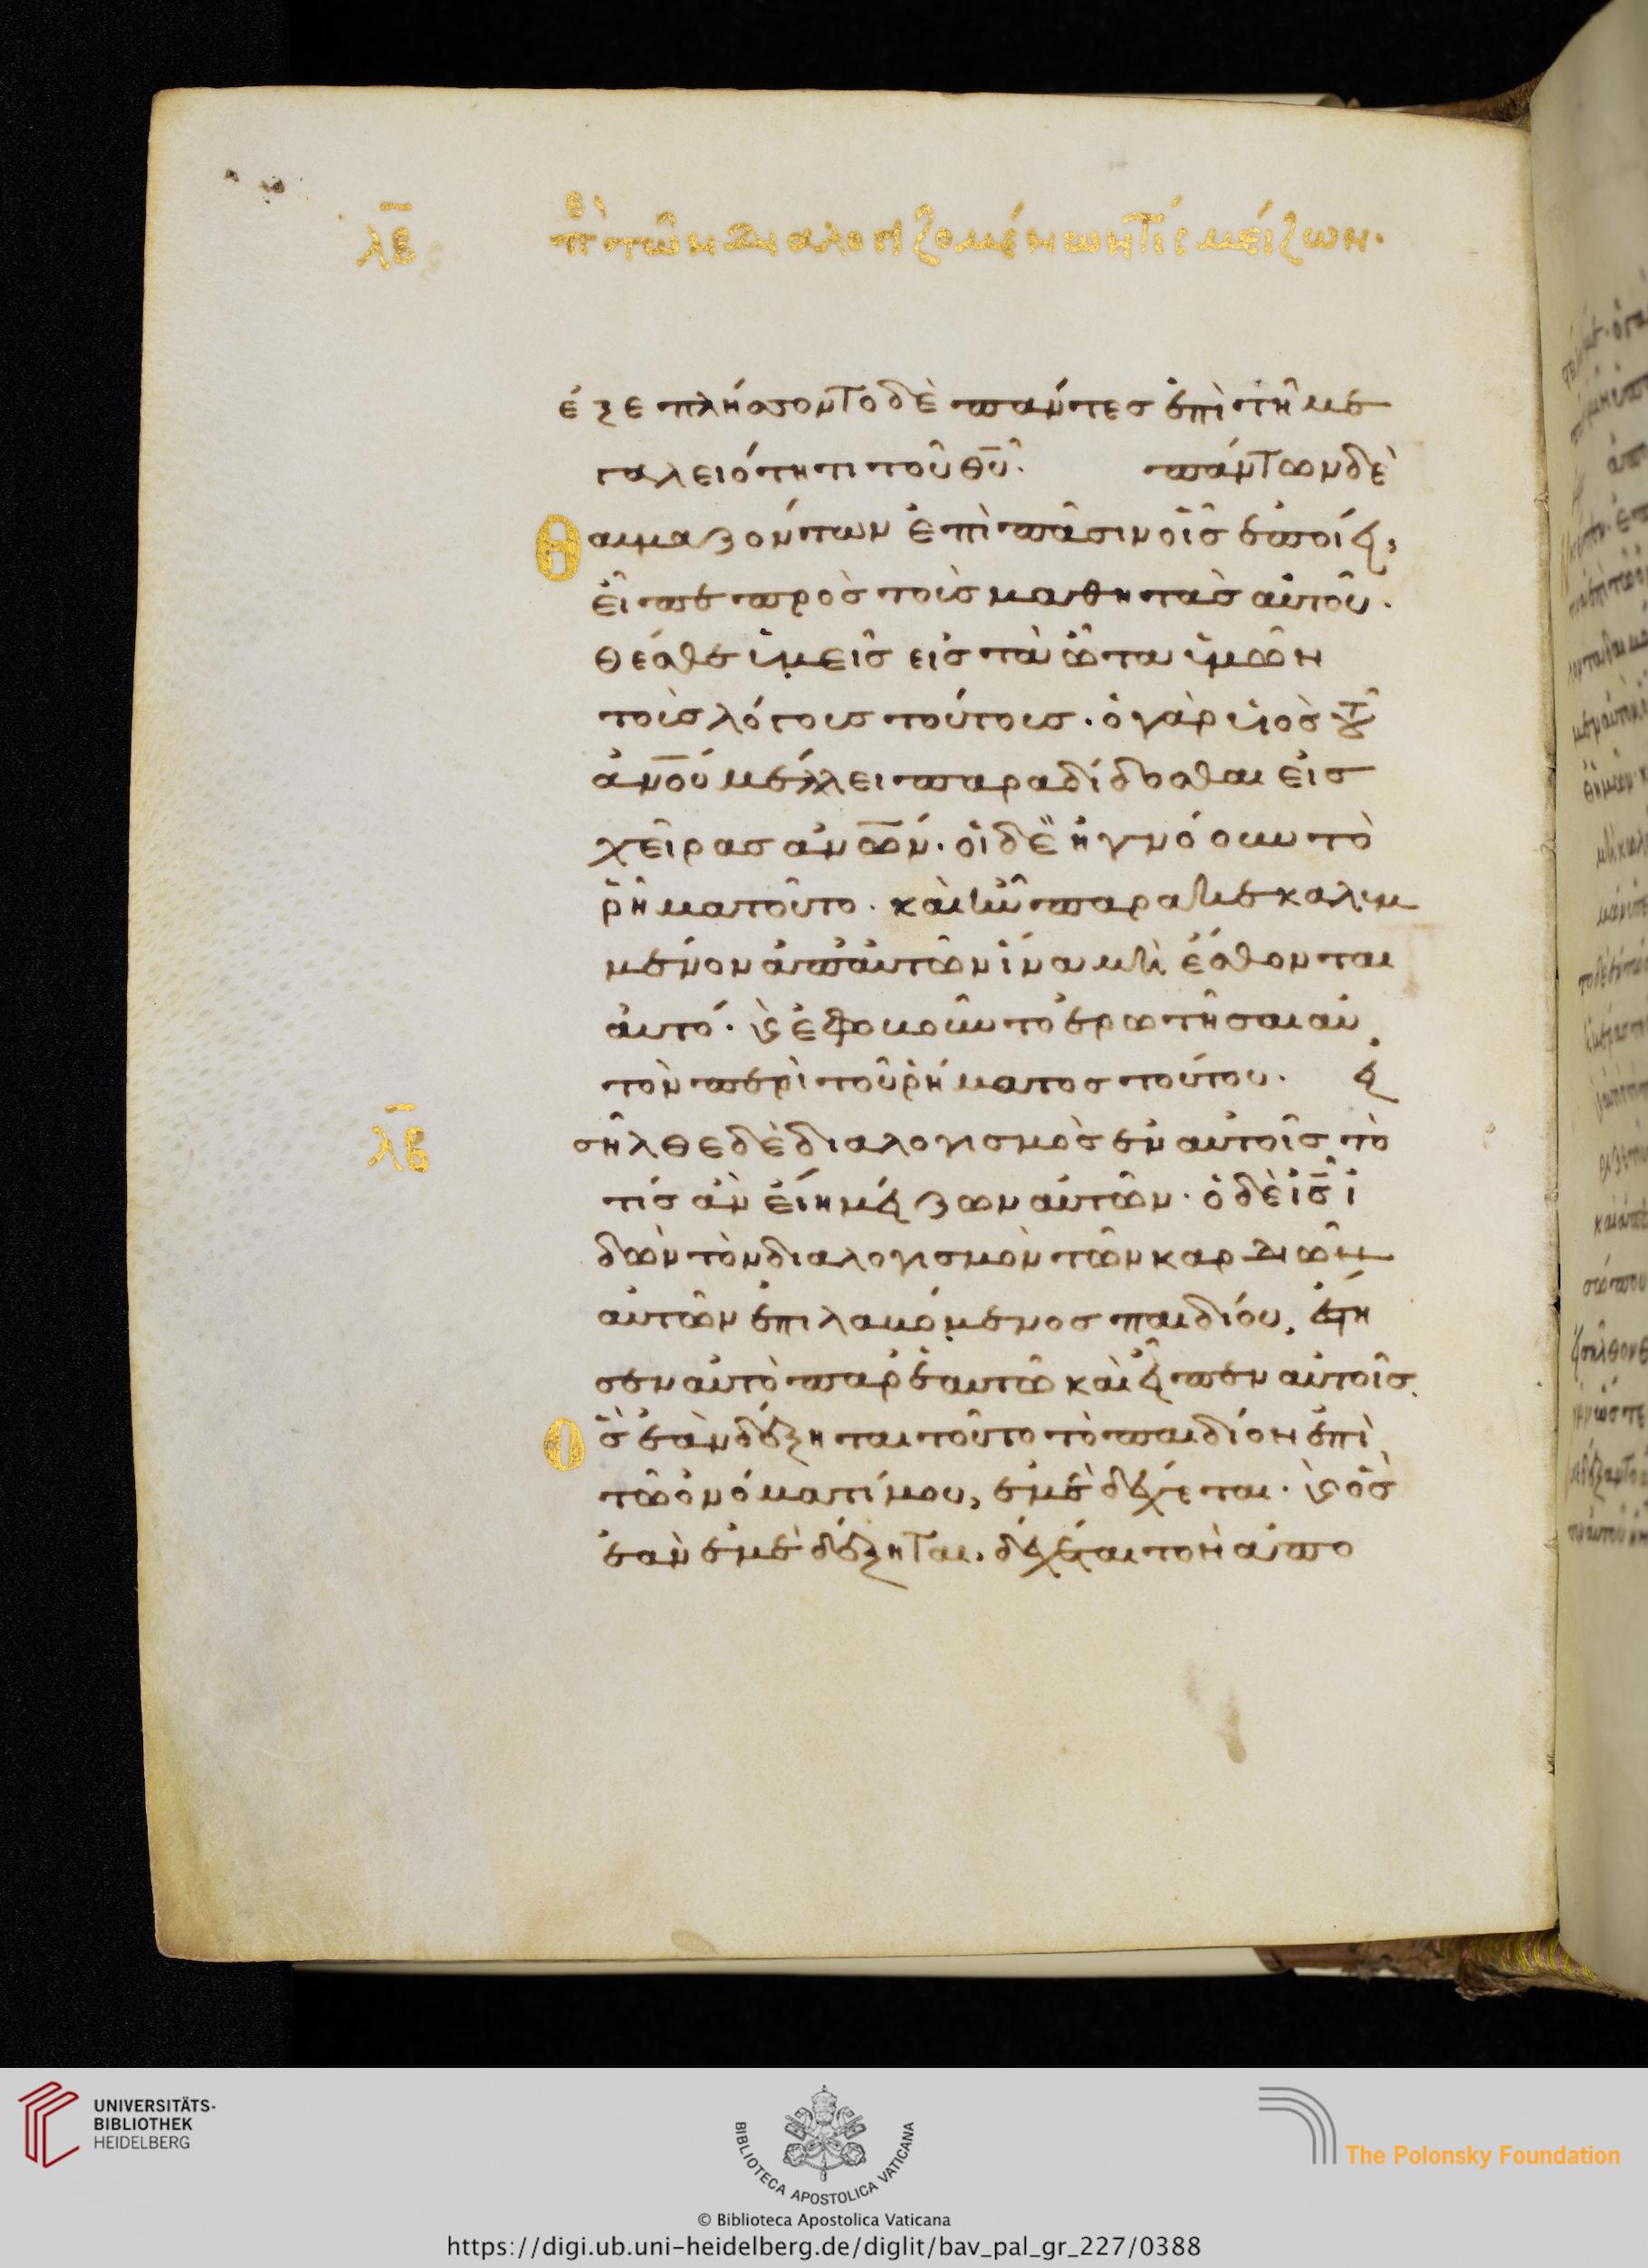 λβ περὶ τῶν διαλογιζομένων τίς μείζων.
ἐξεπλήσσοντο δὲ πάντες ἐπὶ τῆ με
γαλειότητι τοῦ θῦ. πάντων δὲ
Θαυμαζόντων ἐπὶ πᾶσιν οἷς ἐποίει,
εἶπε πρὸς τοὺς μαθητὰς αὐτοῦ.
θέσθε ὑμεῖς εἰς τὰ ὦτα ὑμῶν
τοὺς λόγους τούτους. ὁ γὰρ υἱὸς τοῦ
ἀνοῦ μέλλει παραδίδοσθαι εἰς
χεῖρας ἀνων. οἱ δὲ ἠγνόουν τὸ
ῥῆμα τοῦτο. καὶ ἦν παρακεκαλυμ
μένον ἀπ' αὐτῶν ἵνα μὴ αἴσθωνται
αὐτό. καὶ ἐφοβοῦντο ἐρωτῆσαι αὐ
τὸν περὶ τοῦ ῥήματος τούτου. εἰ
λβ
σῆλθε δὲ διαλογισμὸς ἐν αὐτοῖς τὸ
τίς ἂν εἴη μείζων αὐτῶν. ὁ δὲ ις ἰ
δὼν τὸν διαλογισμὸν τῶν καρδιῶν
αὐτῶν ἐπιλαβόμενος παιδίου, ἔστη
σεν αὐτὸ παρ' ἑαυτῶ καὶ εἶπεν αὐτοῖς.
Ὃς ἐὰν δέξηται τοῦτο τὸ παιδίον ἐπὶ
τῶ ὀνόματί μου, ἐμὲ δέχεται. καὶ ὃς
ἐὰν ἐμὲ δέξηται, δέχεται τὸν ἀπο
UNIVERSITÄTS-
BIBLIOTHEK
HEIDELBERG
BIBLIOTECA APOSTOLICA VATICANA
The Polonsky Foundation
© Biblioteca Apostolica Vaticana
https://digi.ub.uni-heidelberg.de/diglit/bav_pal_gr_227/0388